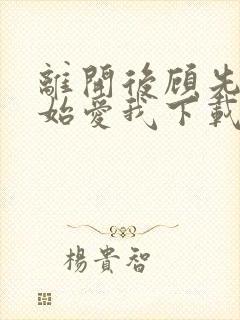 離開後顾先
始愛我下載
楊貴智